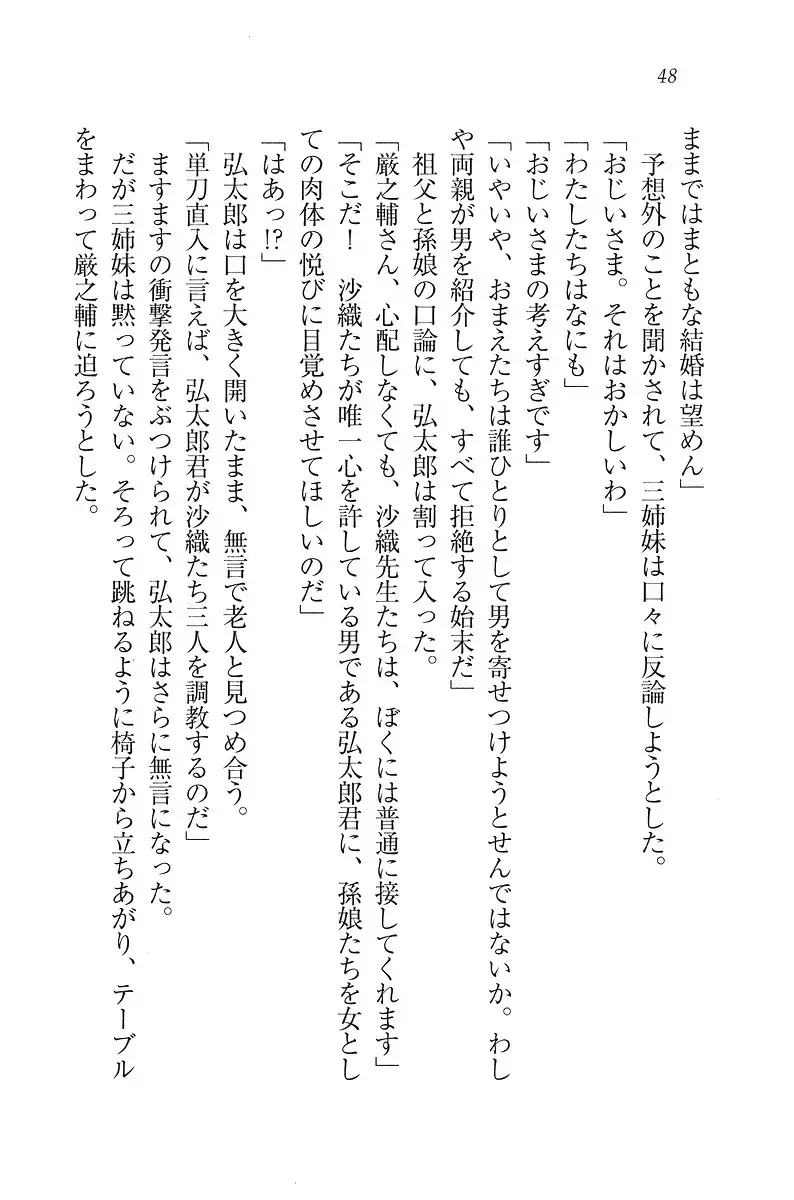 48
ままではまともな結婚は望めん」
　予想外のことを聞かされて、三姉妹は口々に反論しようとした。
「おじいさま。それはおかしいわ」
「わたしたちはなにも」
「おじいさまの考えすぎです」
「いやいや、おまえたちは誰ひとりとして男を寄せつけようとせんではないか。わし
や両親が男を紹介しても、すべて拒絶する始末だ」
　祖父と孫娘の口論に、弘太郎は割って入った。
「厳之輔さん、心配しなくても、沙織先生たちは、ぼくには普通に接してくれます」
「そこだ！　沙織たちが唯一心を許している男である弘太郎君に、孫娘たちを女とし
ての肉体の悦びに目覚めさせてほしいのだ」
「はあっ!?」
　弘太郎は口を大きく開いたまま、無言で老人と見つめ合う。
「単刀直入に言えば、弘太郎君が沙織たち三人を調教するのだ」
　ますますの衝撃発言をぶつけられて、弘太郎はさらに無言になった。
　だが三姉妹は黙っていない。そろって跳ねるように椅子から立ちあがり、テーブル
をまわって厳之輔に迫ろうとした。